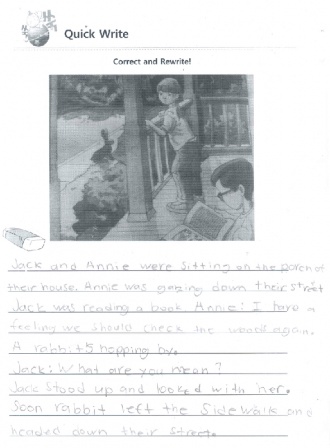 Quick Write
Correct and Rewrite!
Jack and Annie were sitting on the porch of
their house. Annie was gazing down their street
Jack was reading a book Annie: I have a
feeling we should check the woods again.
A rabbit's hopping by.
Jack: What are you mean?
Jack stood up and looked with her.
Soon rabbit left the sidewalk and
headed down their street.